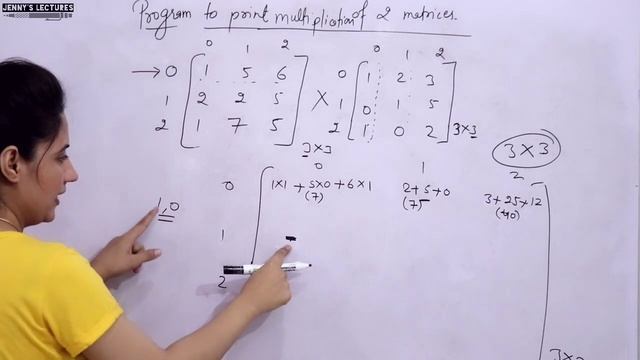 JENNY'S LECTURES
Program to print multiplication of 2 matrices.
0 1 2 0 1 2
→ 0 1 5 6 0 1 2 3
1 2 2 5 × 1 0 1 5
2 1 7 5 2 1 0 2 3×3
3×3 3×3
0 1 2
0 1×1 + 5×0 + 6×1 2+5+0 3+25+12
(7) (75 (40)
1,0
1
2